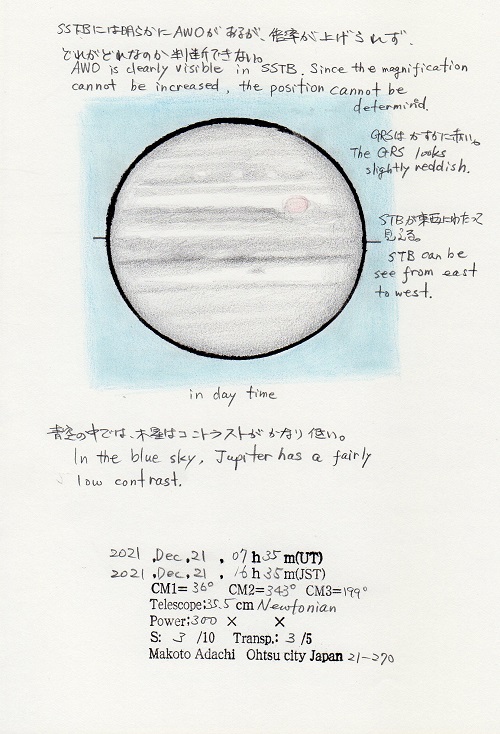 SSTBには明らかにAWOがあるが、倍率が上げられず、
どれがどれなのか判断できない。
AWO is clearly visible in SSTB. Since the magnification
cannot be increased, the position cannot be
determind.
GRSはかすかに赤い。
The GRS looks
slightly reddish.
STBが東西にわたって
見える。
STB can be
see from east
to west.
in day time
青空の中では、木星はコントラストがかなり低い。
In the blue sky, Jupiter has a fairly
low contrast.
2021 .Dec.21 , 07 h 35 m(UT)
2021 .Dec.21 , 16 h 35 m(JST)
CM1= 36° CM2= 343° CM3= 199°
Telescope:35.5 cm Newtonian
Power:300 × ×
S: 3 /10 Transp.: 3 /5
Makoto Adachi Ohtsu city Japan 21-270